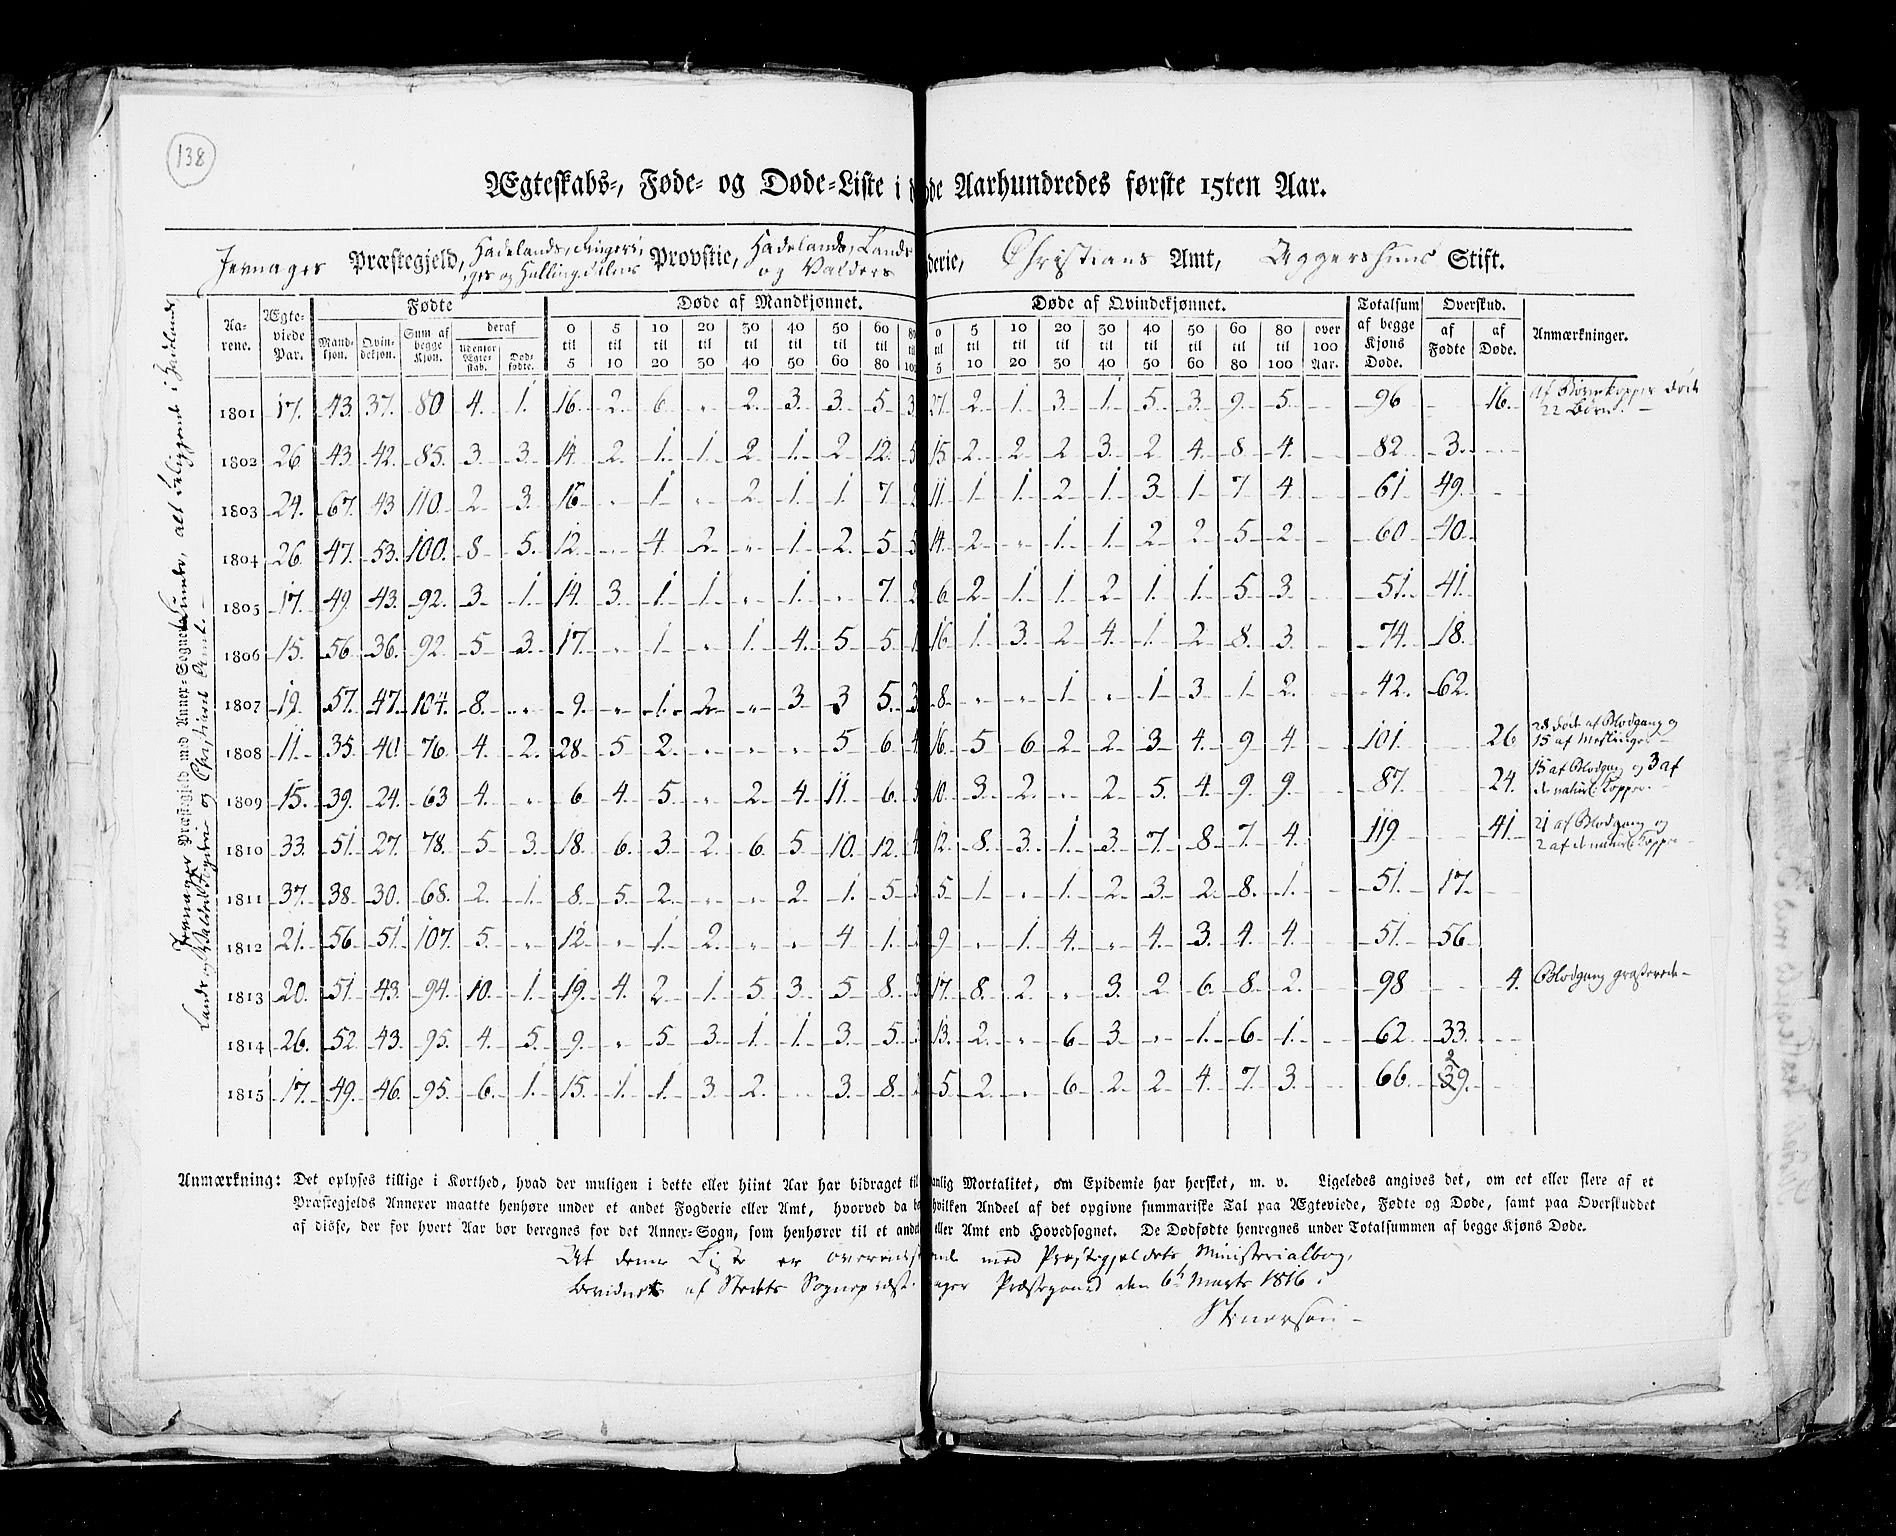 138
Ægteskabs-, Føde- og Døde-Liste i d de Aarhundredes første 15ten Aar.
Jevnager Præstegjeld, Hadelands, Ringeri, Provstie, Hadelands, Lands derie, Christians Amt, Aggershuus Stift.
ges og Hallingdalens og Valders
Aarene. Ægteviede Par. Fødte Døde af Mandkjønnet. Døde af Qvindekjønnet. Totalsum af begge Kjøns Døde. Overskud. Anmærkninger.
Mandkjøn. Qvindekjøn. Sum af begge Kjøn. deraf Udenfor Ægteskab. Dødfødte. 0 til 5 5 til 10 10 til 20 20 til 30 30 til 40 40 til 50 50 til 60 60 til 80 80 til 10 0 til 5 5 til 10 10 til 20 20 til 30 30 til 40 40 til 50 50 til 60 60 til 80 80 til 100 over 100 Aar. af Fødte af Døde.
1801 17. 43. 37. 80 4. 1. 16. 2. 6. " 2. 3. 3. 5. 3. 27. 2. 1. 3. 1. 5. 3. 9. 5. 96 16. af Børnekopper døde
22 Børn.
1802 26 43. 42. 85. 3. 3. 14. 2. 1. 1. 2. 1. 2 12. 5 15 2. 2. 2 3. 2 4. 8. 4. 82 3.
1803 24. 67. 43 110. 2 3. 16 " 1. " 2. 1. 1. 7 11. 1. 1. 2 1. 3. 1. 7 4. 61 49.
1804 26. 47. 53. 100. 8 5. 12. " 4 2. " 1. 2. 5. 5 14. 2. " 1. 1. 2 2. 5 2. 60 40.
1805 17. 49. 43. 92. 3. 1. 14. 3. 1. 1. " 1. " 7. 2 6. 2. 1. 1. 2 1. 1. 5 3. 51. 41.
1806 15. 56 36. 92. 5 3. 17. " 1. " 1. 4. 5 5. 1 16 1. 3. 2 4. 1. 2 8. 3. 74. 18.
1807 19. 57. 47. 104. 8. " 9. " 1. 2. " 3. 3 5. 3. 8. " " 1. " 1. 3. 1. 2. 42. 62.
1808 11. 35. 40. 76. 4. 2. 28. 5 2. " " " 5 6. 4 16. 5 6. 2 2. 3. 4. 9 4. 101. 26 28 døde af Blodgang og
15 af Meslinger
1809 15. 39. 24. 63 4. " 6 4. 5. " 2. 4. 11. 6. 10. 3. 2. " 2. 5. 4. 9. 9. 87. 24. 15 af Blodgang og 3 af
de naturl. Kopper.
1810 33. 51. 27. 78. 5 3. 18. 6. 3. 2. 6. 5. 10. 12. 4 12. 8. 3. 1. 3. 7. 8. 7. 4. 119. 41. 21 af Blodgang og
2 af de naturl. Kopper
1811 37. 38. 30. 68. 2. 1. 8. 5 2. " " 2. 1. 5. 5. 1. " 1. 2. 3. 2. 8. 1. 51. 17.
1812 21. 56. 51. 107. 5. " 12. " 1. 2. " " 4 1. 9 " 1. 4. " 4. 3. 4. 4. 51. 56
1813 20. 51. 43. 94. 10. 1. 19. 4. 2. 1. 5. 3. 5 8. 17. 8. 2. " 3. 2 6. 8. 2. 98 4. Blodgang grasserede
1814 26. 52. 43. 95. 4. 5. 9. " 5 3. 1. 1. 3. 5. 13. 2. " 6 3. " 1. 6. 1. 62. 33.
1815 17. 49. 46. 95. 6. 1. 15. 1. 1. 3. 2. 3. 8. 5. 2. " 6 2. 2 4. 7. 3. 66. 29.
Jevnager Præstegjeld med Annex-Sogne Lunder, alt beliggende i Hadelands
Lands og Valders Fogderie og Christians Amt.
Anmærkning: Det oplyses tillige i Korthed, hvad der muligen i dette eller hiint Aar har bidraget til anlig Mortalitet, om Epidemie har hersket, m. v. Ligeledes angives det, om eet eller flere af et
Præstegjelds Annexer maatte henhøre under et andet Fogderie eller Amt, hvorved da b hvilken Andeel af det opgivne summariske Tal paa Ægteviede, Fødte og Døde, samt paa Overskuddet
af disse, der for hvert Aar bør beregnes for det Annex-Sogn, som henhører til et andet eller Amt end Hovedsognet. De Dødfødte henregnes under Totalsummen af begge Kjøns Døde.
At denne Liste er overeensst ende med Præstegjeldets Ministerialbog,
bevidnes af Stedets Sognepræst. ager Præstegaard den 6t Marts 1816.
Stenersen